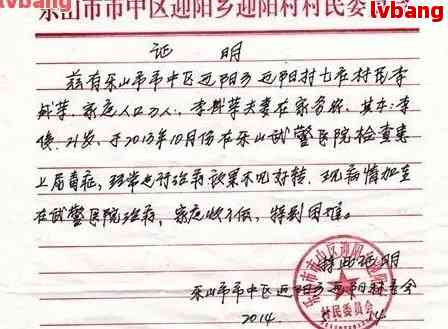 lvbang
乐山市市中区迎阳乡迎阳村村民委员会
lvbang
证 明
兹有乐山市市中区迎阳乡迎阳村七社村民李
家庭人口 人:李 夫妻在家务农,其子:李
俊,21岁,于2013年10月份在乐山武警医院检查患
上尿毒症,经常透析治病效果不见好转,现病情加重
在武警医院治病,家庭收入低,特别困难。
特此证明
乐山市市中区迎阳乡迎阳村委会
2014
村民委员会